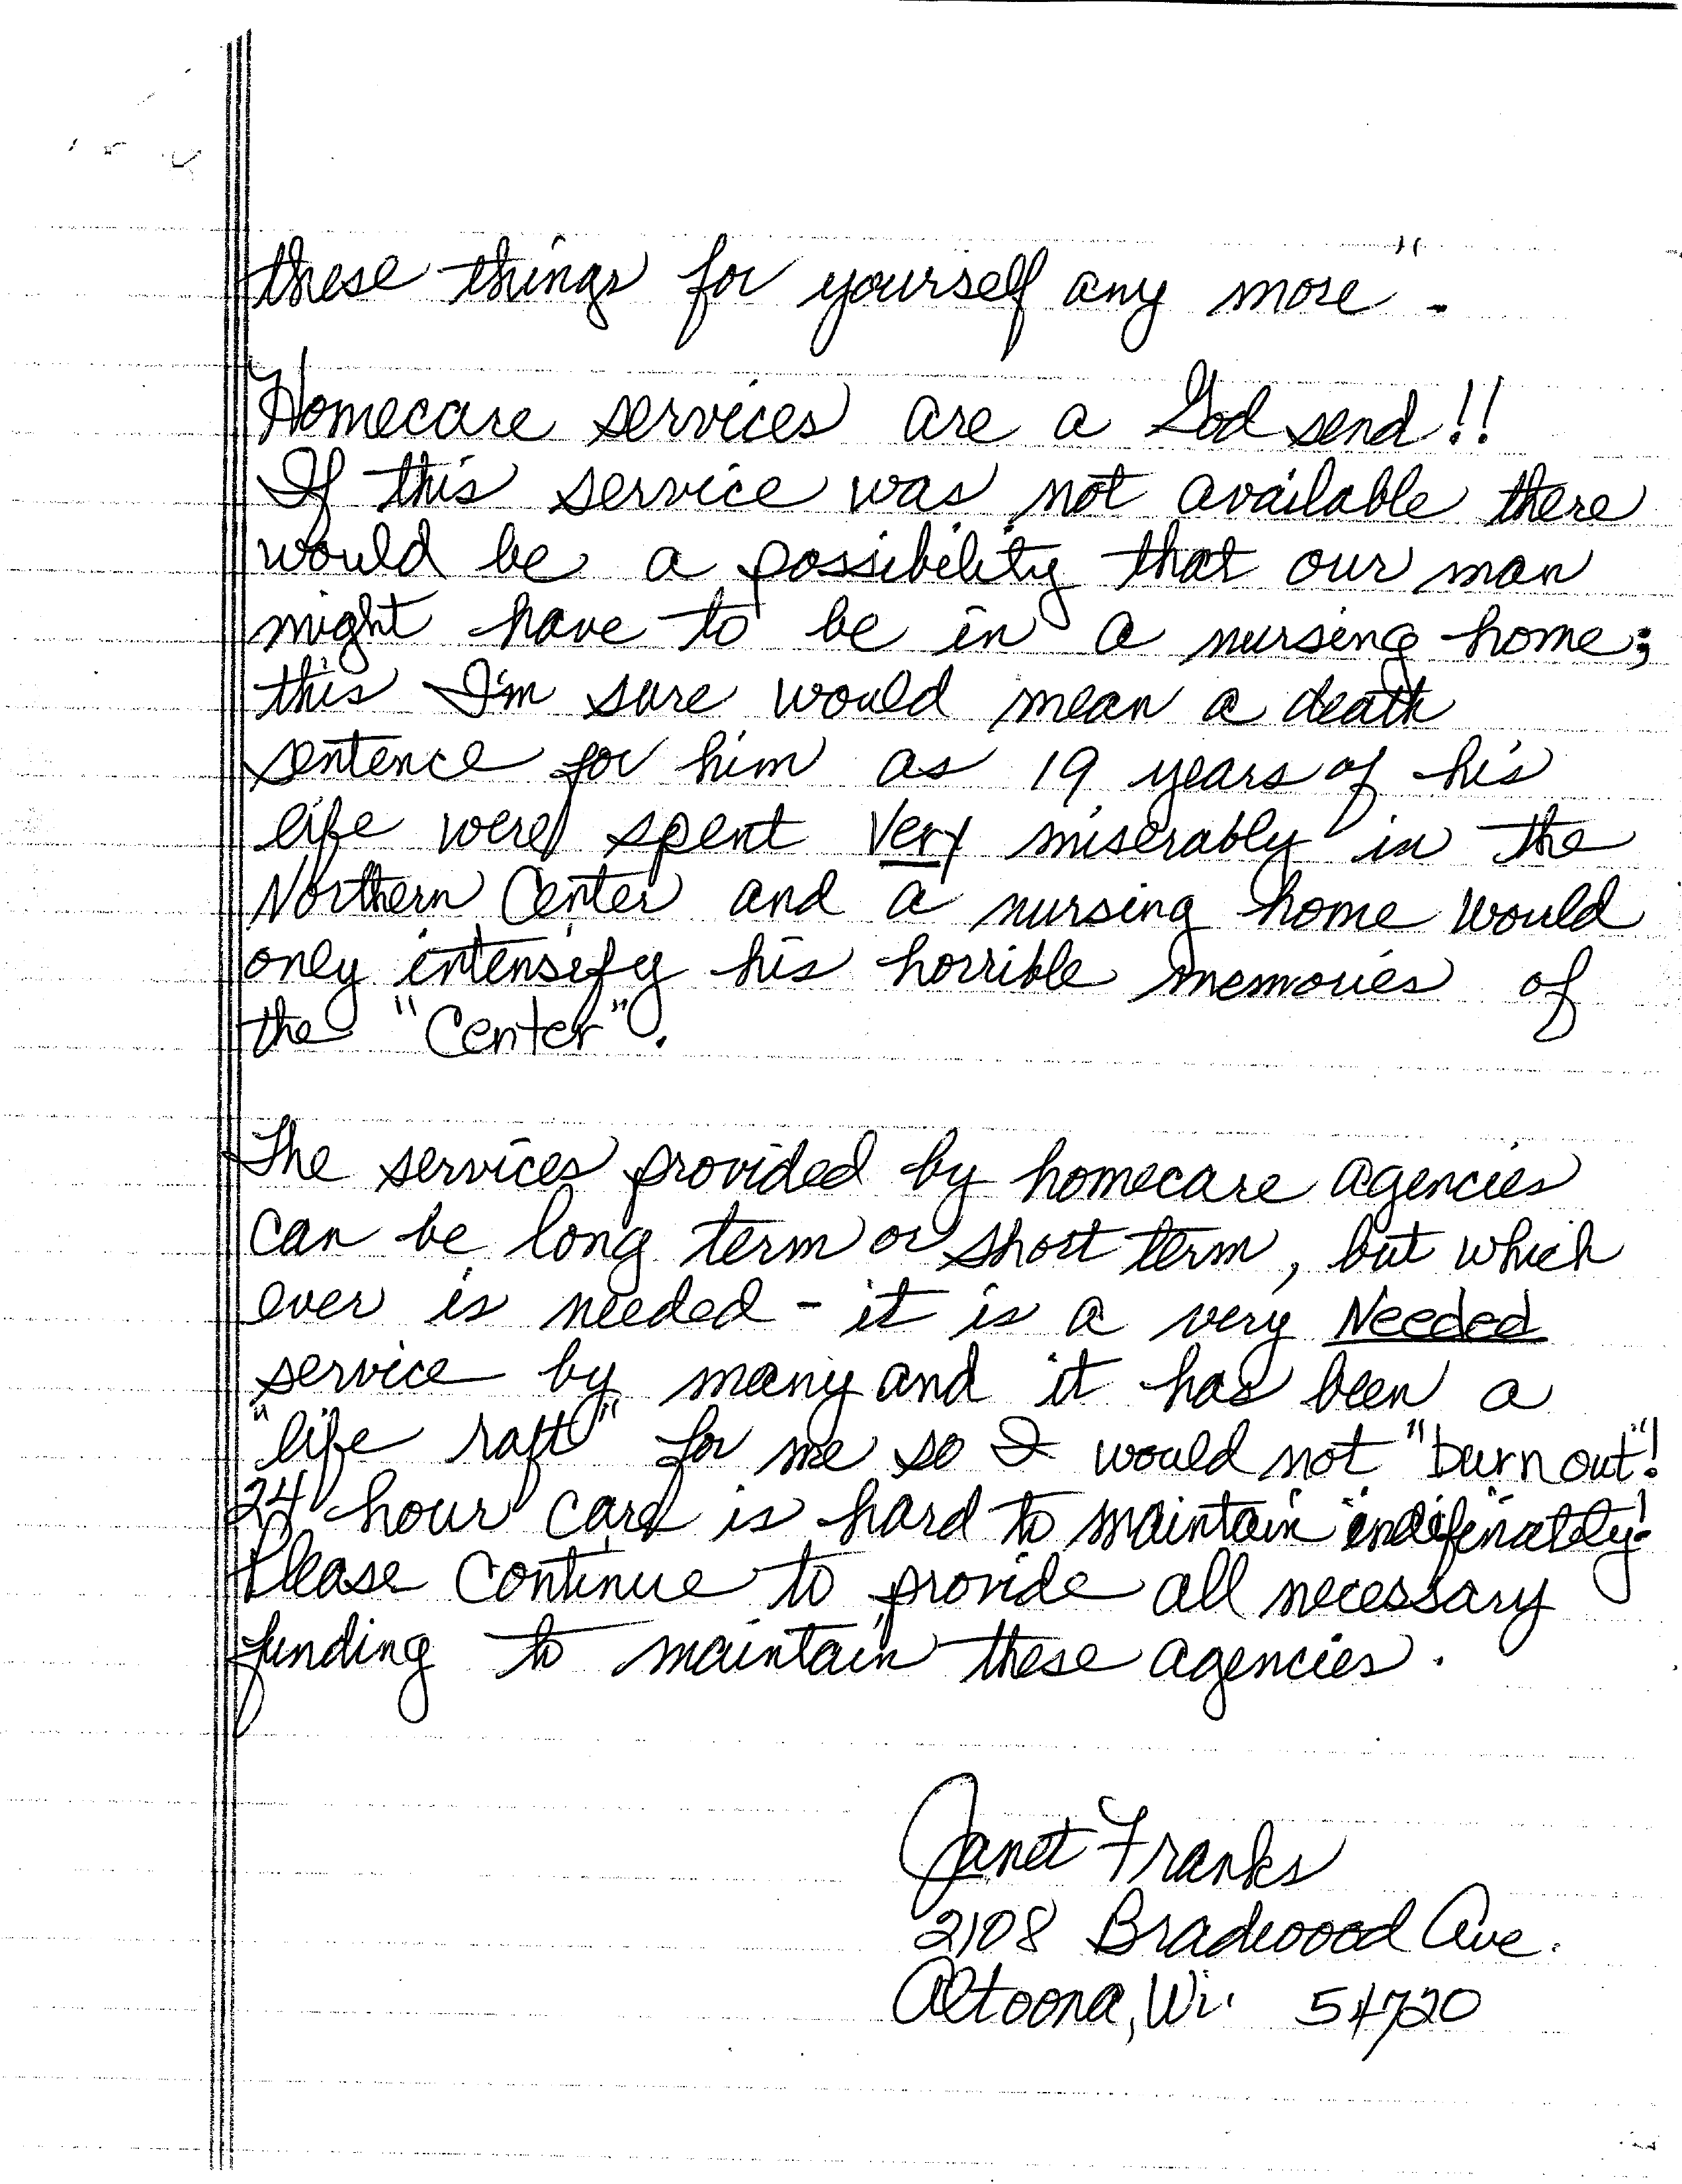 these things for yourself any more".
Homecare services are a God send!!
If this service was not available there
would be a possibility that our man
might have to be in a nursing home;
this I'm sure would mean a death
sentence for him as 19 years of his
life were spent very miserably in the
Northern Center and a nursing home would
only intensify his horrible memories of
the "Center".
The services provided by homecare agencies
can be long term or short term, but which
ever is needed - it is a very Needed
service by many and it has been a
"life raft" for me so I would not "burn out"!
24 hour care is hard to maintain "indifinately"!
Please continue to provide all necessary
funding to maintain these agencies.
Janet Franks
2108 Bradwood Ave.
Altoona, Wi. 54720